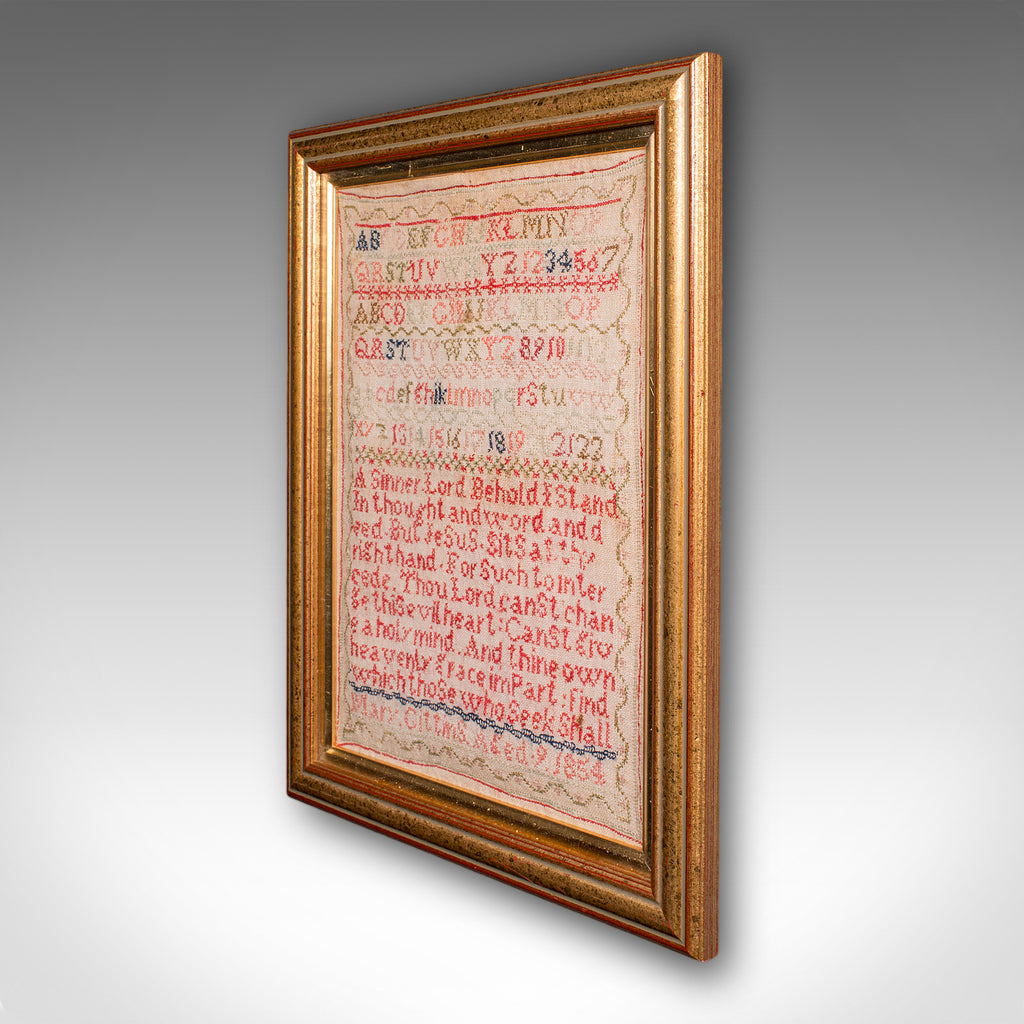 AB EFGH KLMN OP
QRSTUV YZ 1234567
ABCD GHIJKLMN OP
QRSTUVWXYZ 8910
cdefghiklmnopqrstuvw
xyz 13 14 15 16 17 18 19 21 22
A Sinner Lord Behold I Stand
In thought and word and d
eed. But Jesus. Sits at thy
right hand. For Such to inter
cede. Thou Lord canst chan
ge this evil heart: Canst giv
e a holy mind. And thine own
heavenly grace impart: find
which those who Seek Shall
Mary Aged. 9 1854